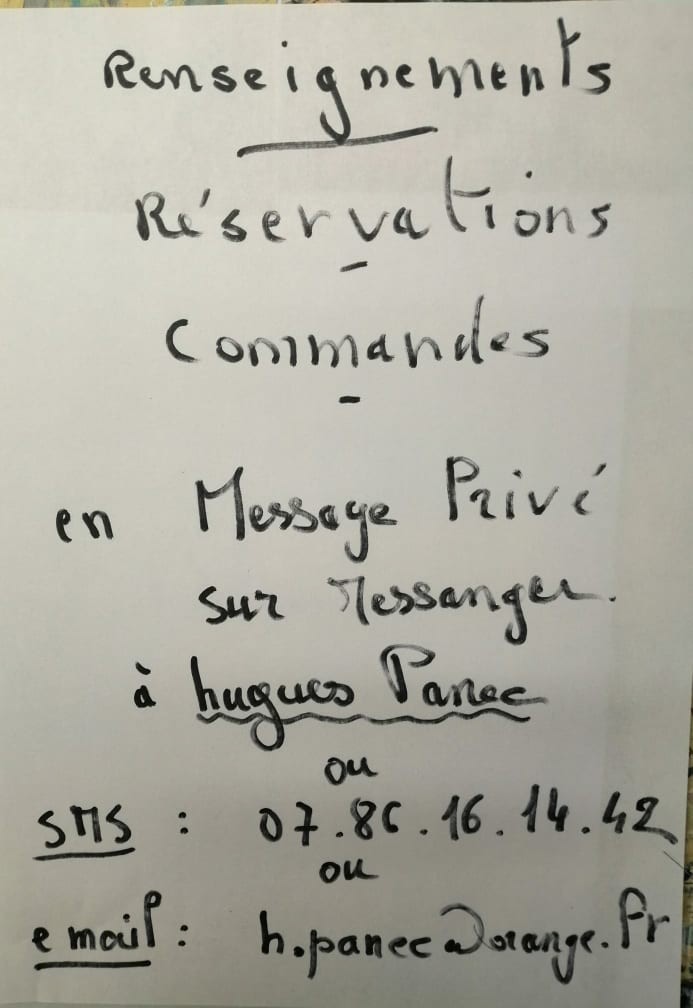 Renseignements
Réservations
-
Commandes
-
en Message Privé
sur Messanger.
à hugues Panec
ou
SMS : 07.86.16.14.42
ou
email : h.panec@orange.fr